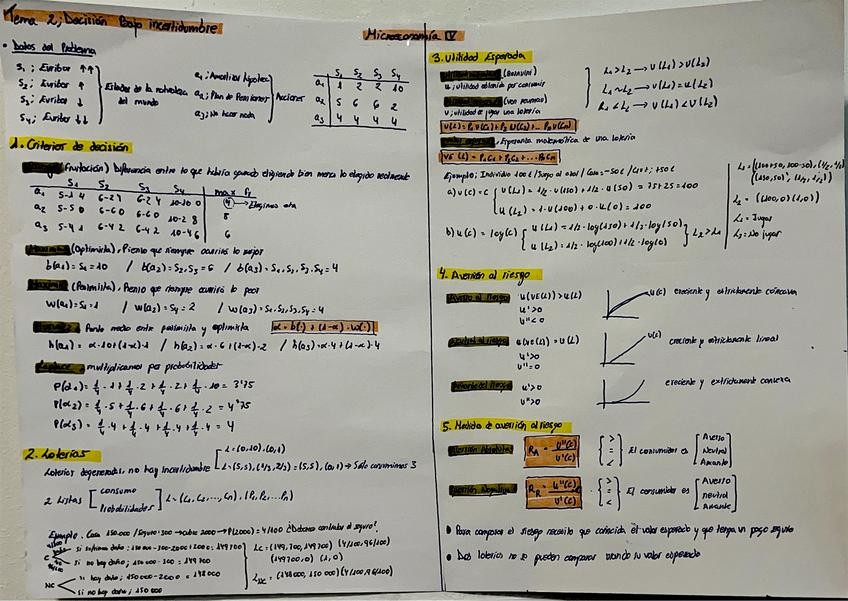 Tema 2; Decisión Bajo incertidumbre
Microeconomía IV
• Datos del Problema
S1; Euribor ↑↑
S2; Euribor ↑
S3; Euribor ↓
S4; Euribor ↓↓
Estados de la naturaleza del mundo
a1; Amortizar hipoteca
a2; Plan de Pensiones
a3; No hacer nada
Acciones
S1 S2 S3 S4
a1 1 2 2 10
a2 5 6 6 2
a3 4 4 4 4
1. Criterios de decisión
(frustración) Diferencia entre lo que habría ganado eligiendo bien menos lo elegido realmente
S1 S2 S3 S4 max
a1 5-1 4 6-2 4 6-2 4 10-10 0 4 → Elegimos esta
a2 5-5 0 6-6 0 6-6 0 10-2 8 8
a3 5-4 1 6-4 2 6-4 2 10-4 6 6
(Optimista), Pienso que siempre ocurrirá lo mejor
b(a1) = S4 = 10 / b(a2) = S2, S3 = 6 / b(a3) = S1, S2, S3, S4 = 4
(Pesimista), Pienso que siempre ocurrirá lo peor
w(a1) = S1 = 1 / w(a2) = S4 = 2 / w(a3) = S1, S2, S3, S4 = 4
Punto medio entre pesimista y optimista α·b(·) + (1-α)·w(·)
h(a1) = α·10+(1-α)·1 / h(a2) = α·6+(1-α)·2 / h(a3) = α·4+(1-α)·4
Laplace, multiplicamos por probabilidades
P(a1) = 1/4·1 + 1/4·2 + 1/4·2 + 1/4·10 = 3'75
P(a2) = 1/4·5 + 1/4·6 + 1/4·6 + 1/4·2 = 4'75
P(a3) = 1/4·4 + 1/4·4 + 1/4·4 + 1/4·4 = 4
2. Loterías
Loterías degeneradas, no hay incertidumbre
L = (0,10), (0,1)
L = (5,5), (1/3, 2/3) = (5,5), (0,1) → Sólo consumimos 5
2 Listas [consumo
Probabilidades] L = (C1, C2, ..., Cn), (P1, P2, ... Pn)
Ejemplo. Casa 150.000 / Seguro=300 → cubre 2000 → P(2000) = 4/100 ¿Debemos contratar el seguro?
C
si sufrimos daño; 150.000-300-2000+2000 = 149700
si no hay daño; 150.000-300 = 149.700
NC
si hay daño; 150.000-2000 = 148000
si no hay daño; 150.000
LC = (149,700, 149700) (4/100, 96/100)
(149700,0) (1,0)
LNC = (148000, 150000) (4/100, 96/100)
3. Utilidad Esperada
(Bernoulli)
u; utilidad obtenida por consumir
(Von Neumann)
v; utilidad de jugar una lotería
L1 > L2 → U(L1) > U(L2)
L1 ~ L2 → U(L1) = U(L2)
L1 < L2 → U(L1) < U(L2)
U(L) = P1 U(C1) + P2 U(C2) + ... Pn U(Cn)
Valor esperado, Esperanza matemática de una lotería
VE(L) = P1C1 + P2C2 + ... PnCn
Ejemplo; Individuo 100€ / Juego al azar / Cara = -50€ / Cruz; +50€
a) u(c) = c
U(L1) = 1/2·u(150) + 1/2·u(50) = 75+25 = 100
U(L2) = 1·u(100) + 0·u(0) = 100
b) u(c) = log(c)
U(L1) = 1/2·log(150) + 1/2·log(50)
U(L2) = 1/2·log(100) + 1/2·log(0)
L2 > L1
L1 = (100+50, 100-50), (1/2, 1/2)
(150,50), (1/2, 1/2)
L2 = (100,0) (1,0)
L1 = Jugar
L2 = No jugar
4. Aversión al riesgo
Averso al riesgo
u(VE(L)) > U(L)
u' > 0
u'' < 0
u(c)
creciente y estrictamente cóncava
Neutral al riesgo
u(VE(L)) = U(L)
u' > 0
u'' = 0
u(c)
creciente y estrictamente lineal
Amante del riesgo
u' > 0
u'' > 0
creciente y estrictamente convexa
5. Medida de aversión al riesgo
Aversión Absoluta
RA = - u''(c) / u'(c)
{> = <} El consumidor es [Averso
Neutral
Amante]
Aversión
RR = - u''(c) / u'(c)
{> = <} El consumidor es [Averso
neutral
Amante]
• Para comparar el riesgo necesito que coincida el valor esperado y que tenga un pago seguro
• Dos loterías no se pueden comparar usando su valor esperado